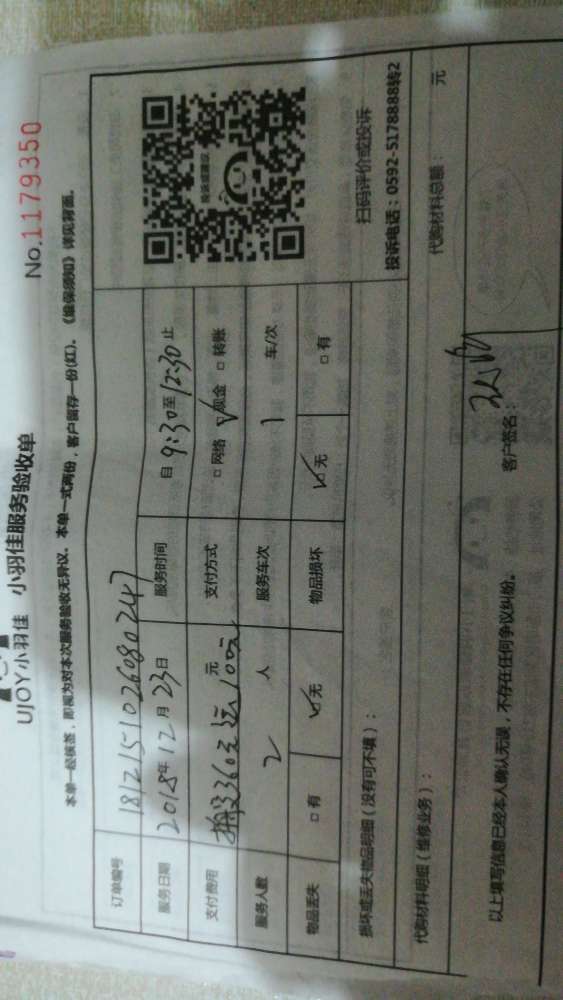 UJOY小羽佳 小羽佳服务验收单
No.1179350
本单一经核签，即视为对本次服务验收无异议。本单一式两份，客户留存一份(红)。《维保须知》详见背面。
订单编号 1812151026080247
服务日期 2018年12月23日 服务时间 自9:30至12:30止
支付费用 360元 100元 元 支付方式 □网络 ☑现金 □转账
服务人数 2 人 服务车次 1 车/次
物品丢失 □有 ☑无 物品损坏 ☑无 □有
投诉或建议
扫码评价或投诉
投诉电话：0592-5178888转2
损坏或丢失物品明细（没有可不填）：
代购材料明细（维修业务）： 代购材料总额： 元
以上填写信息已经本人确认无误，不存在任何争议纠纷。 客户签名：